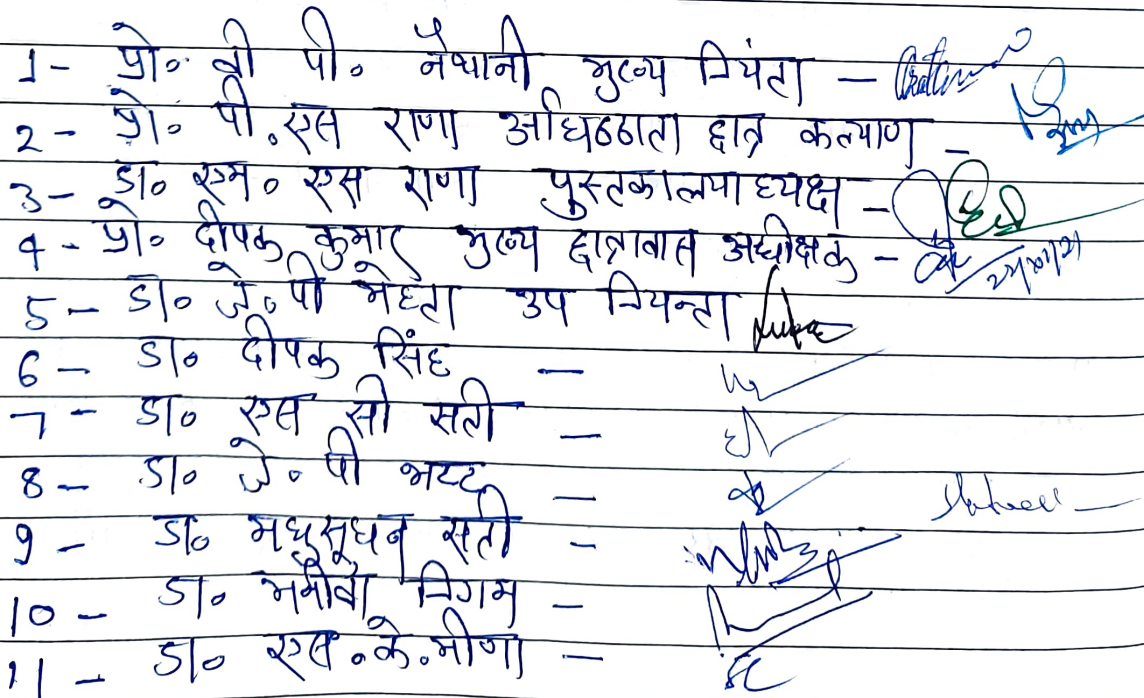 1- प्रो० बी पी० नैथानी मुख्य नियंता -
2- प्रो० पी.एस राणा अधिष्ठाता छात्र कल्याण -
3- डा० एम० एस राणा पुस्तकालयाध्यक्ष -
4- प्रो० दीपक कुमार मुख्य छात्रावास अधीक्षक -
5- डा० जे.पी मेहता उप नियन्ता
6- डा० दीपक सिंह -
7- डा० एस सी सती -
8- डा० जे० पी भट्ट -
9- डा० मधुसूधन सती -
10- डा० निगम -
11- डा० एस.के.मीणा -